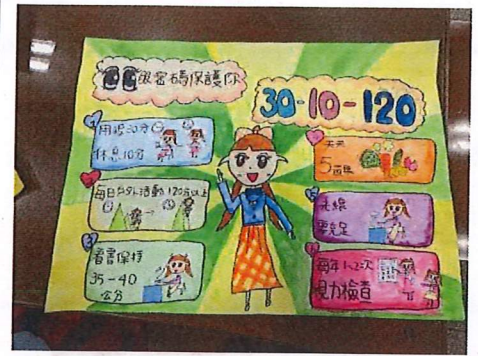 眼密碼保護你
30-10-120
1
用眼30分
休息10分
2
每日戶外活動120分以上
3
看書保持
35-40
公分
天天
5蔬果
光線
要充足
每年1~2次
視力檢查